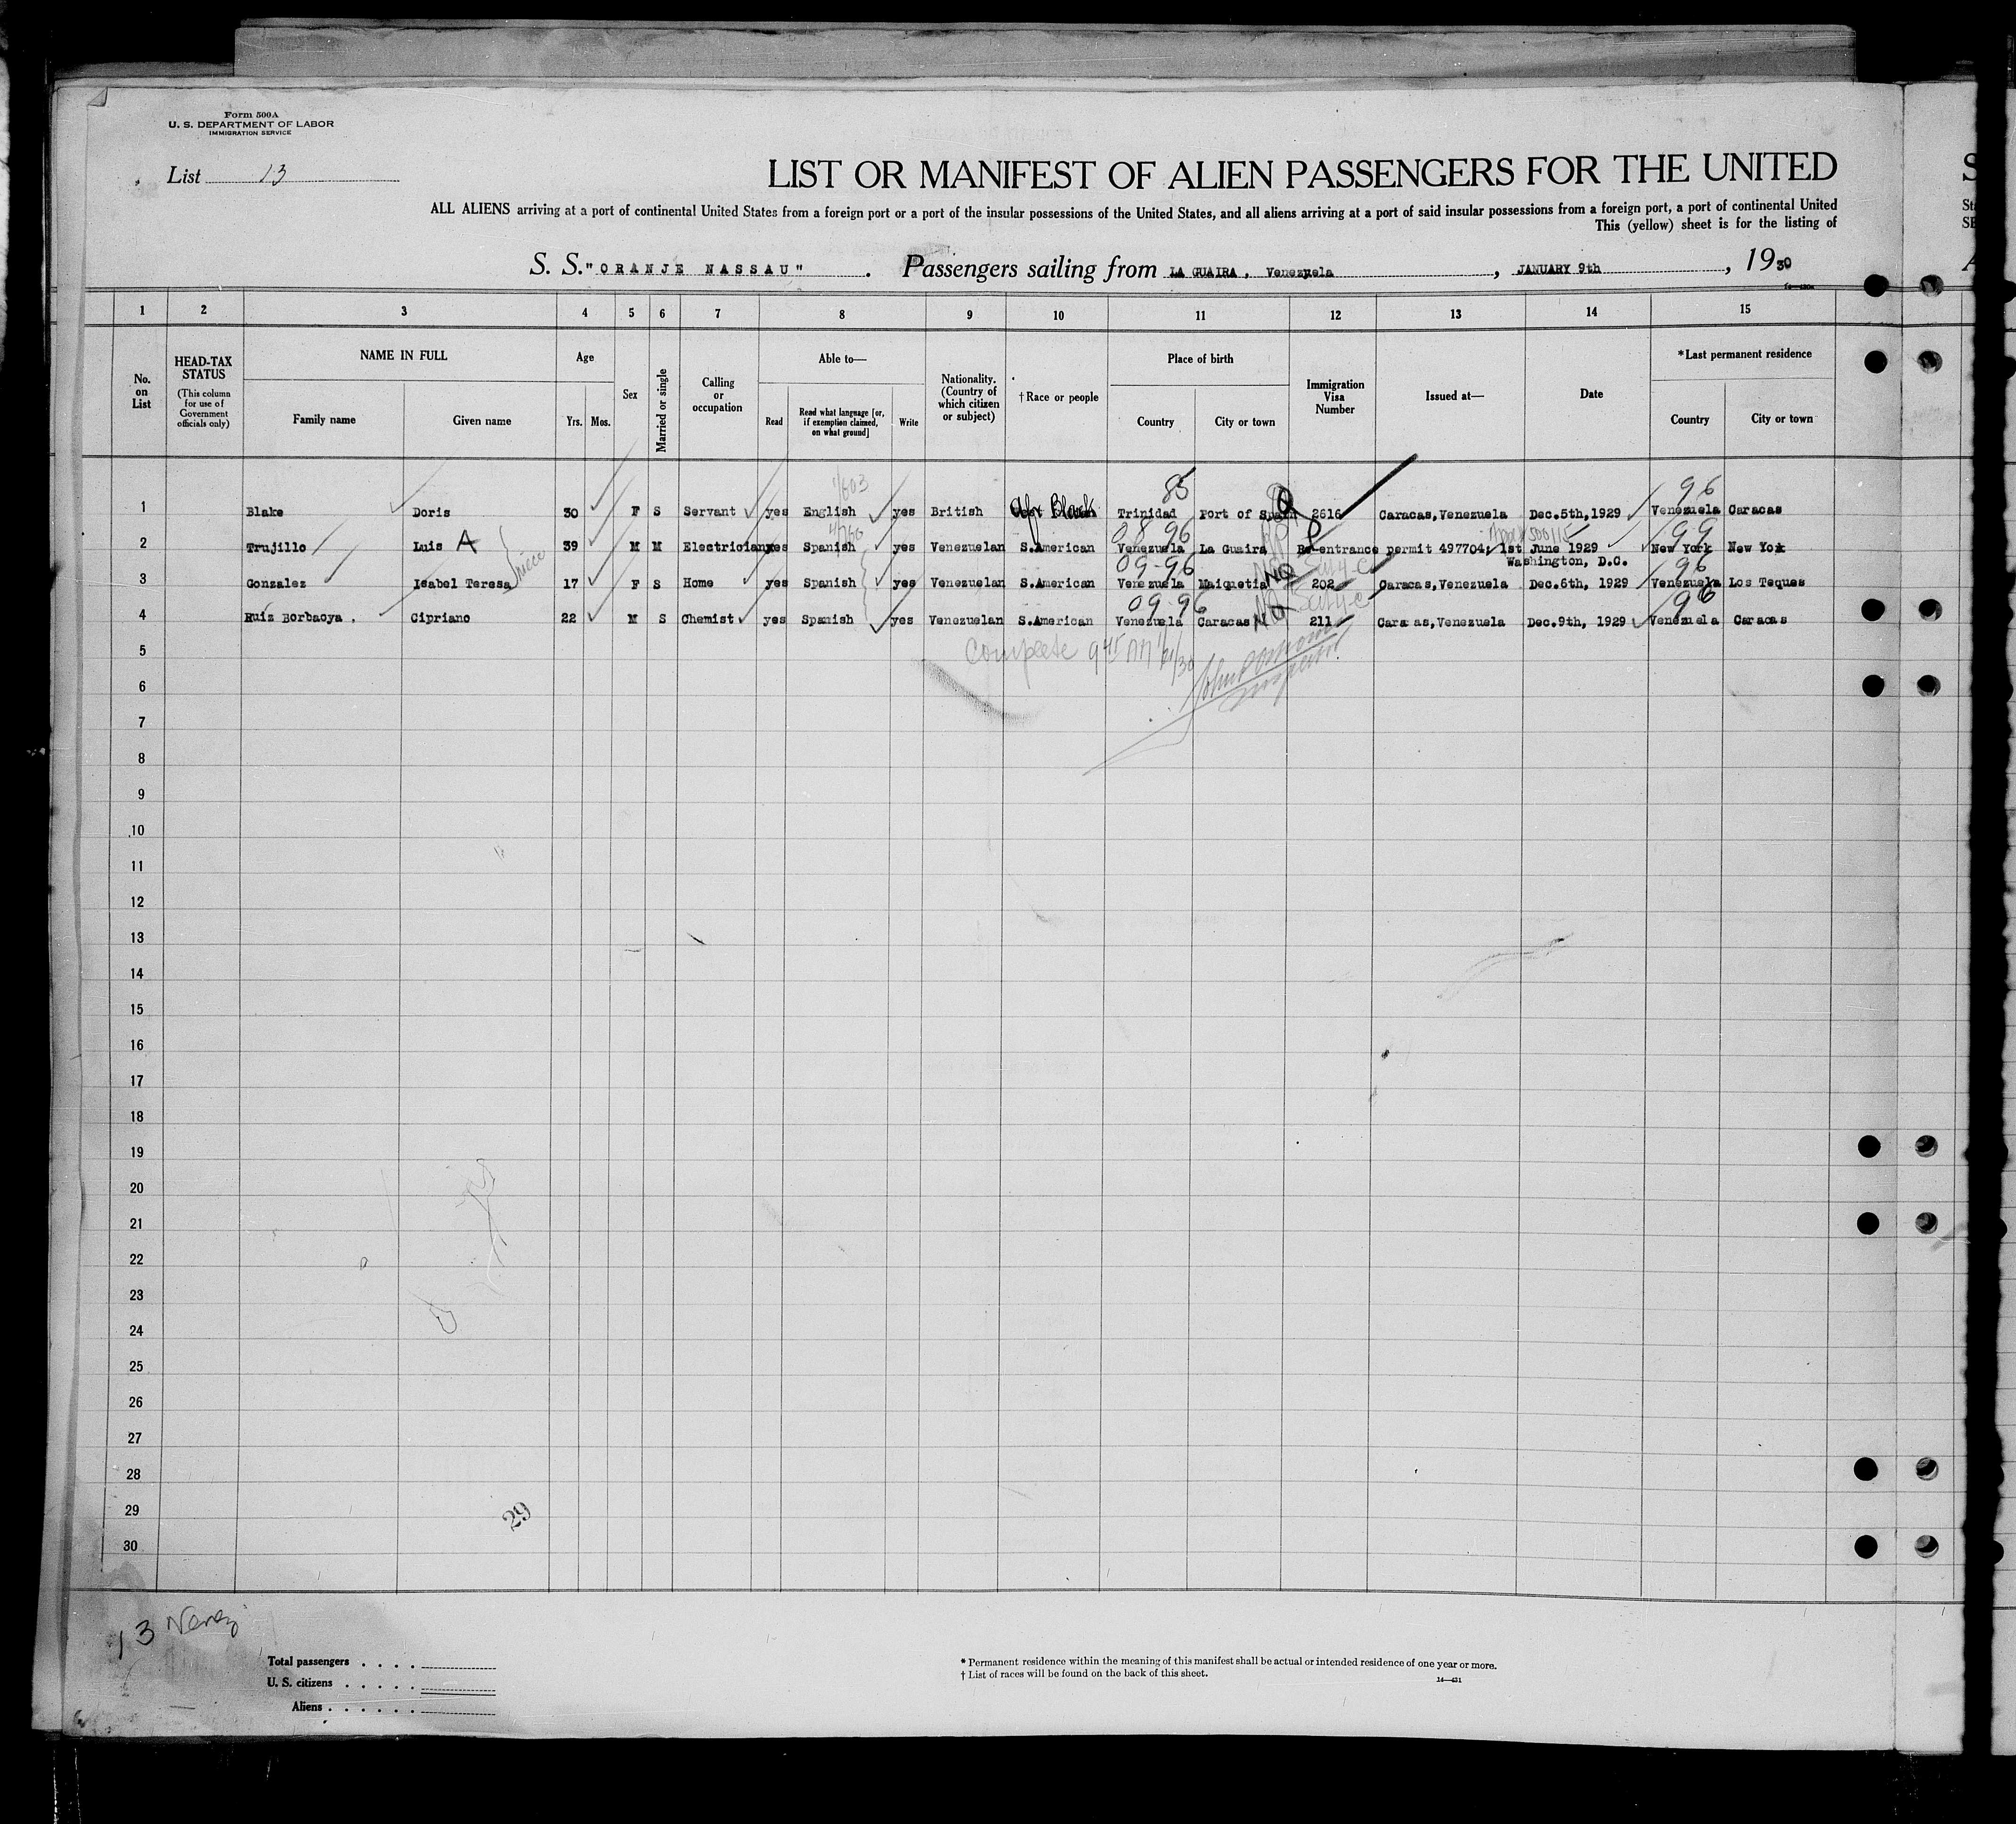 Form 500A
U. S. DEPARTMENT OF LABOR
IMMIGRATION SERVICE
List 13
LIST OR MANIFEST OF ALIEN PASSENGERS FOR THE UNITED
ALL ALIENS arriving at a port of continental United States from a foreign port or a port of the insular possessions of the United States, and all aliens arriving at a port of said insular possessions from a foreign port, a port of continental United
This (yellow) sheet is for the listing of
S. S. "ORANJE NASSAU" . Passengers sailing from LA GUAIRA, Venezuela , JANUARY 9th , 1930
1 2 3 4 5 6 7 8 9 10 11 12 13 14 15
No. on List
HEAD-TAX STATUS
(This column for use of Government officials only)
NAME IN FULL
Family name Given name
Age
Yrs. Mos.
Sex
Married or single
Calling or occupation
Able to—
Read Read what language [or, if exemption claimed, on what ground] Write
Nationality. (Country of which citizen or subject)
†Race or people
Place of birth
Country City or town
Immigration Visa Number
Issued at—
Date
*Last permanent residence
Country City or town
85 96
1 Blake Doris 30 F S Servant yes English yes British Afr Black Trinidad Port of Spain 2616 Caracas,Venezuela Dec.5th,1929 Venezuela Caracas
08 96 99
2 Trujillo Luis A 39 M M Electrician yes Spanish yes Venezuelan S.American Venezuela La Guaira Re-entrance permit 497704, 1st June 1929 New York New York
niece
Washington, D.C.
09-96 96
3 Gonzalez Isabel Teresa 17 F S Home yes Spanish yes Venezuelan S.American Venezuela Maiquetia NQ 202 Caracas,Venezuela Dec.6th, 1929 Venezuela Los Teques
09-96 96
4 Ruiz Borbaoya . Cipriano 22 M S Chemist yes Spanish yes Venezuelan S.American Venezuela Caracas 211 Caracas,Venezuela Dec.9th, 1929 Venezuela Caracas
5
Complete 9 45
6
7
8
9
10
11
12
13
14
15
16
17
18
19
20
21
22
23
24
25
26
27
28
29
29
30
13
Total passengers . . . .
U. S. citizens . . . . .
Aliens . . . . . .
* Permanent residence within the meaning of this manifest shall be actual or intended residence of one year or more.
† List of races will be found on the back of this sheet.